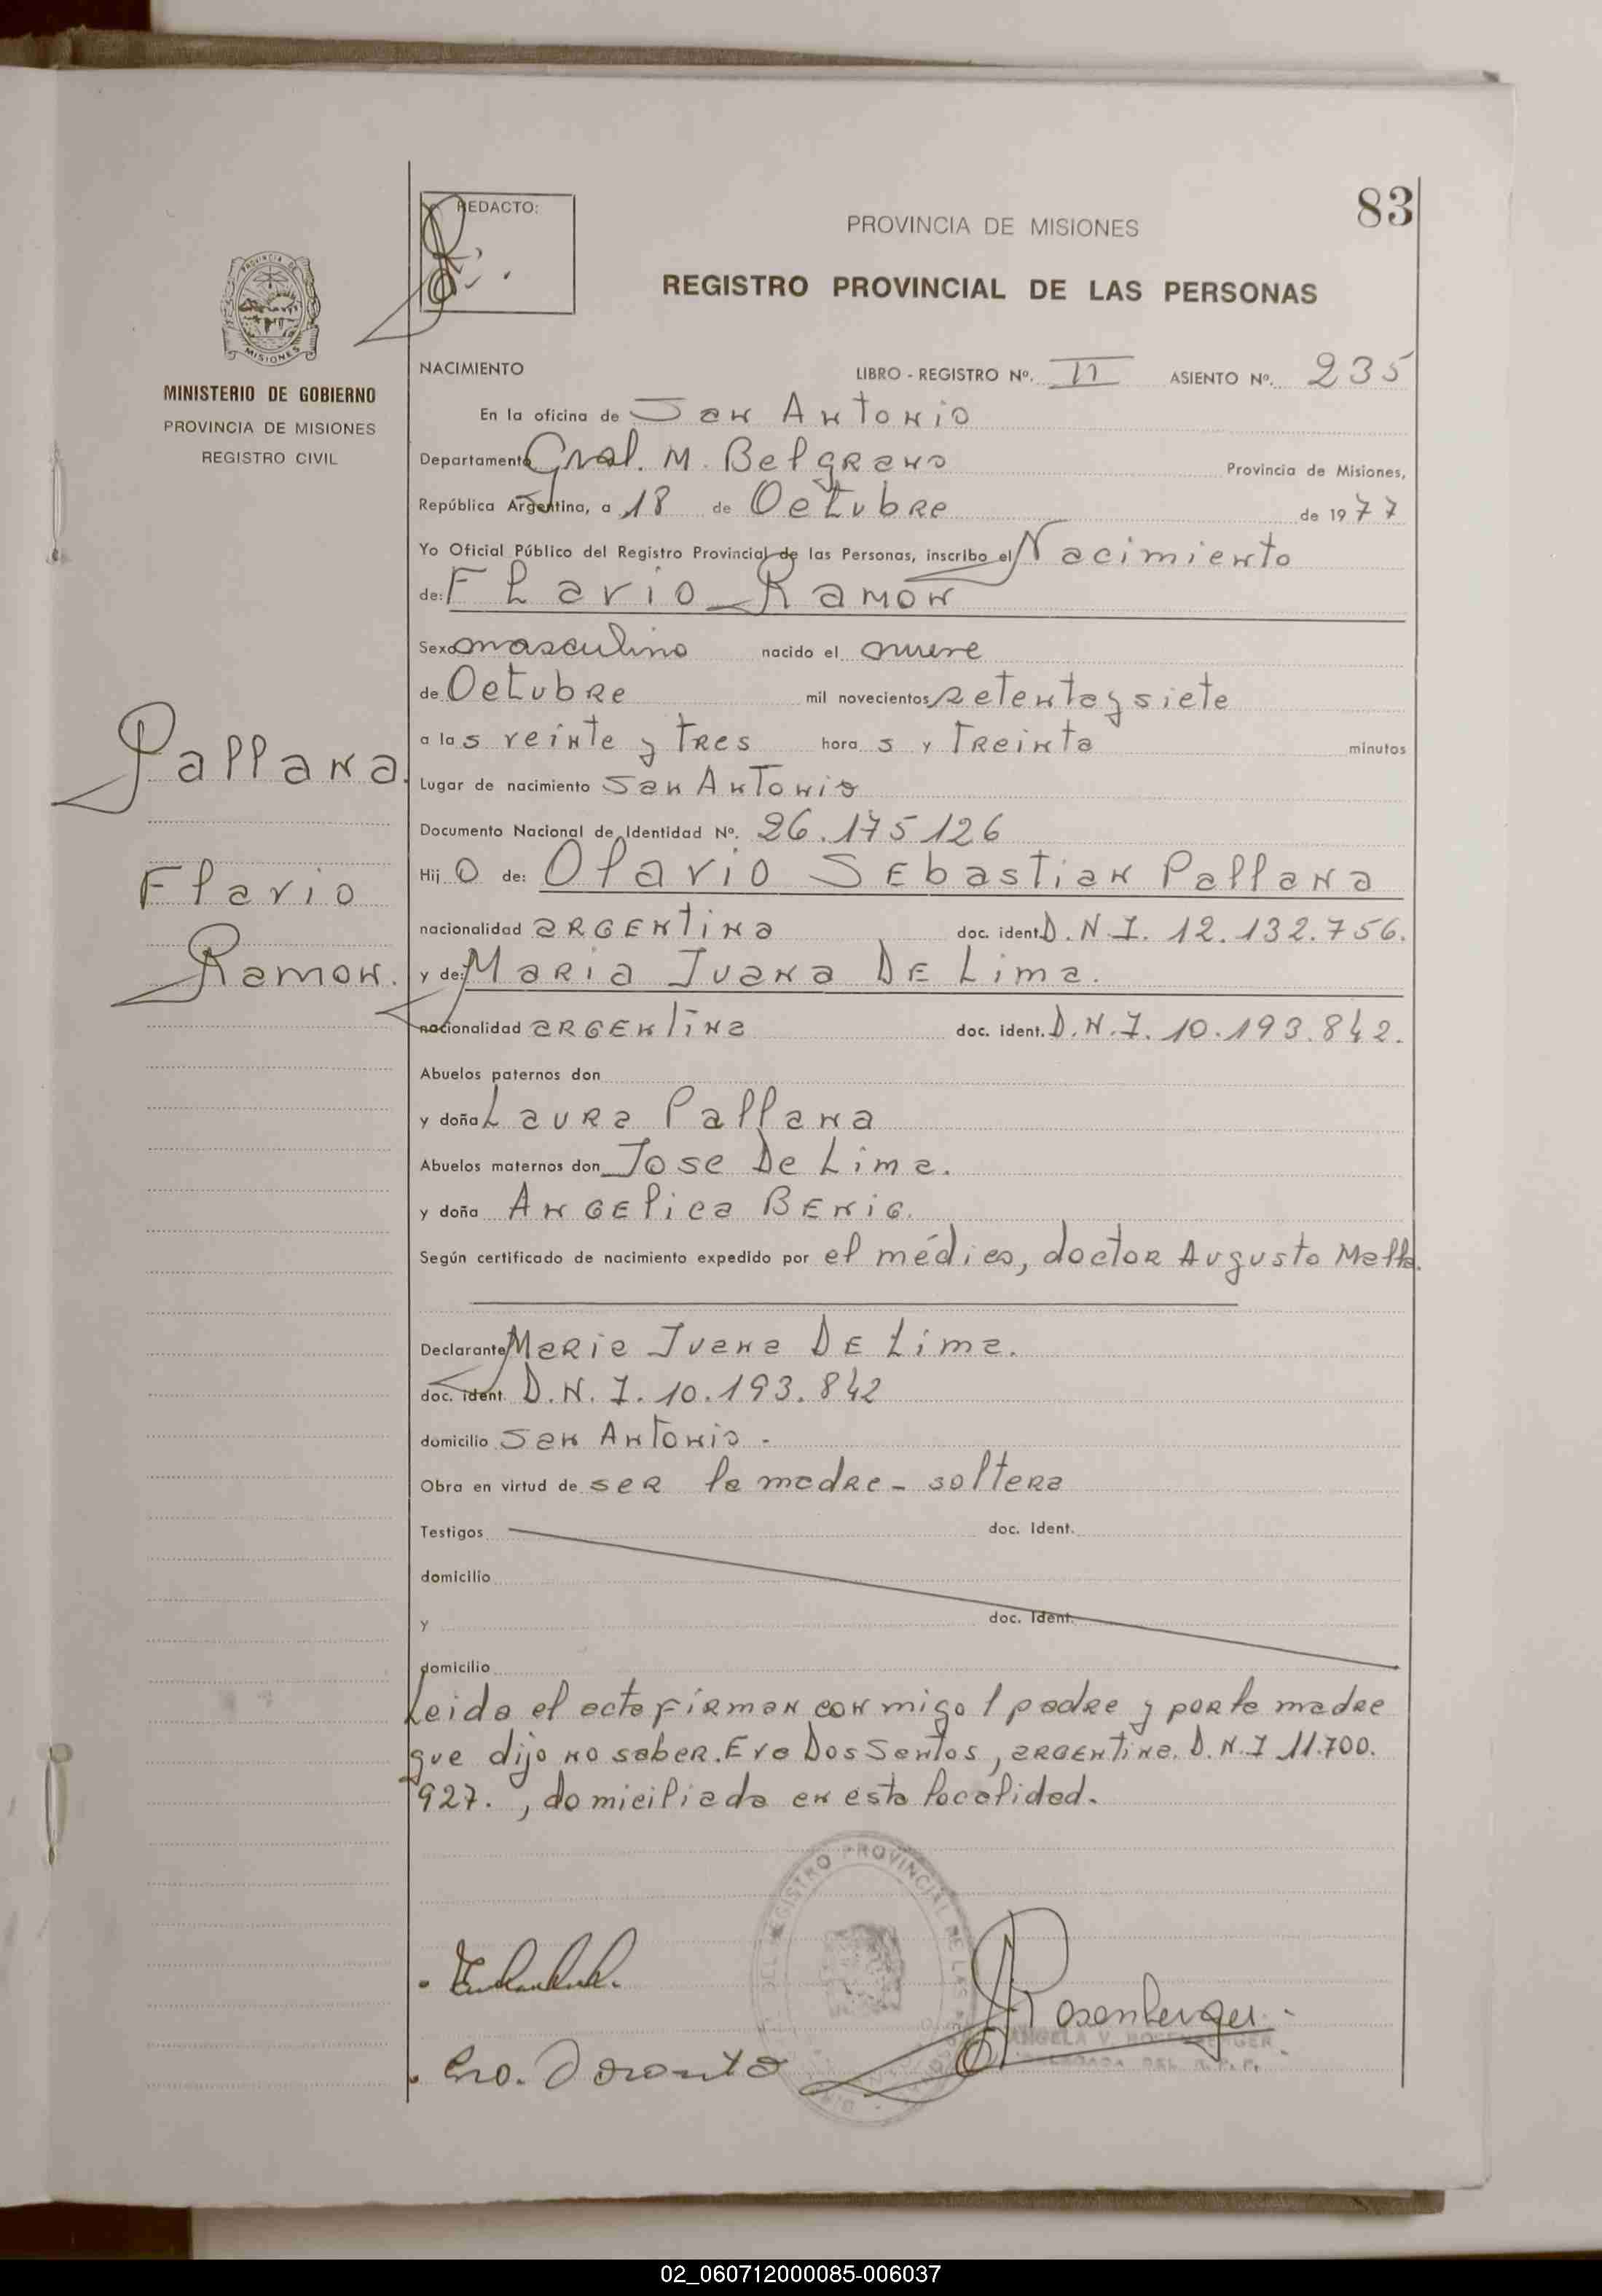 83
REDACTO:
PROVINCIA DE MISIONES
REGISTRO PROVINCIAL DE LAS PERSONAS
PROVINCIA DE
MISIONES
MINISTERIO DE GOBIERNO
PROVINCIA DE MISIONES
REGISTRO CIVIL
NACIMIENTO LIBRO - REGISTRO Nº. II ASIENTO Nº. 235
En la oficina de San Antonio
Departamento Gral. M. Belgrano Provincia de Misiones,
República Argentina, a 18 de Octubre de 1977
Yo Oficial Público del Registro Provincial de las Personas, inscribo el Nacimiento
de: Flavio Ramon
Sexo masculino nacido el nueve
de Octubre mil novecientos setenta y siete
a las veinte y tres horas y treinta minutos
Lugar de nacimiento San Antonio
Documento Nacional de Identidad Nº. 26.175126
Hijo de: Olavio Sebastian Pallana
nacionalidad argentina doc. ident. D.N.I. 12.132.756.
y de: Maria Juana De Lima.
nacionalidad argentina doc. ident. D.N.I. 10.193.842.
Abuelos paternos don
y doña Laura Pallana
Abuelos maternos don Jose De Lima.
y doña Angelica Benig.
Según certificado de nacimiento expedido por el médico, doctor Augusto
Declarante Maria Juana De Lima.
doc. ident. D.N.I. 10.193.842
domicilio San Antonio.
Obra en virtud de ser la madre - soltera
Testigos doc. Ident.
domicilio
y doc. Ident.
domicilio
Leida el acta firman conmigo l padre y por la madre
que dijo no saber. Eva Dos Santos, argentina. D.N.I 11.700.
927., domiciliada en esta localidad.
Pallana.
Flavio
Ramon.
Rosenberger
ANGELA V. ROSENBERGER
DELEGADA DEL R.P.P.
REGISTRO PROVINCIAL DE LAS
02_060712000085-006037